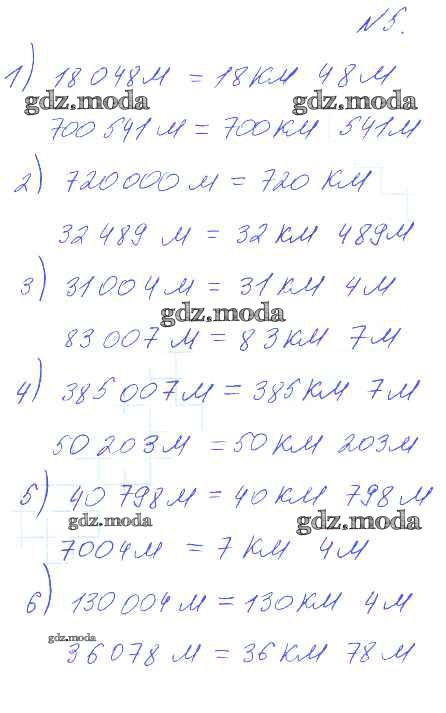 № 5.
1) 18 048 м = 18 км 48 м
gdz.moda gdz.moda
700 541 м = 700 км 541 м
2) 720 000 м = 720 км
32 489 м = 32 км 489 м
3) 31 004 м = 31 км 4 м
gdz.moda
83 007 м = 83 км 7 м
4) 385 007 м = 385 км 7 м
50 203 м = 50 км 203 м
5) 40 798 м = 40 км 798 м
gdz.moda gdz.moda
7004 м = 7 км 4 м
6) 130 004 м = 130 км 4 м
gdz.moda
36 078 м = 36 км 78 м